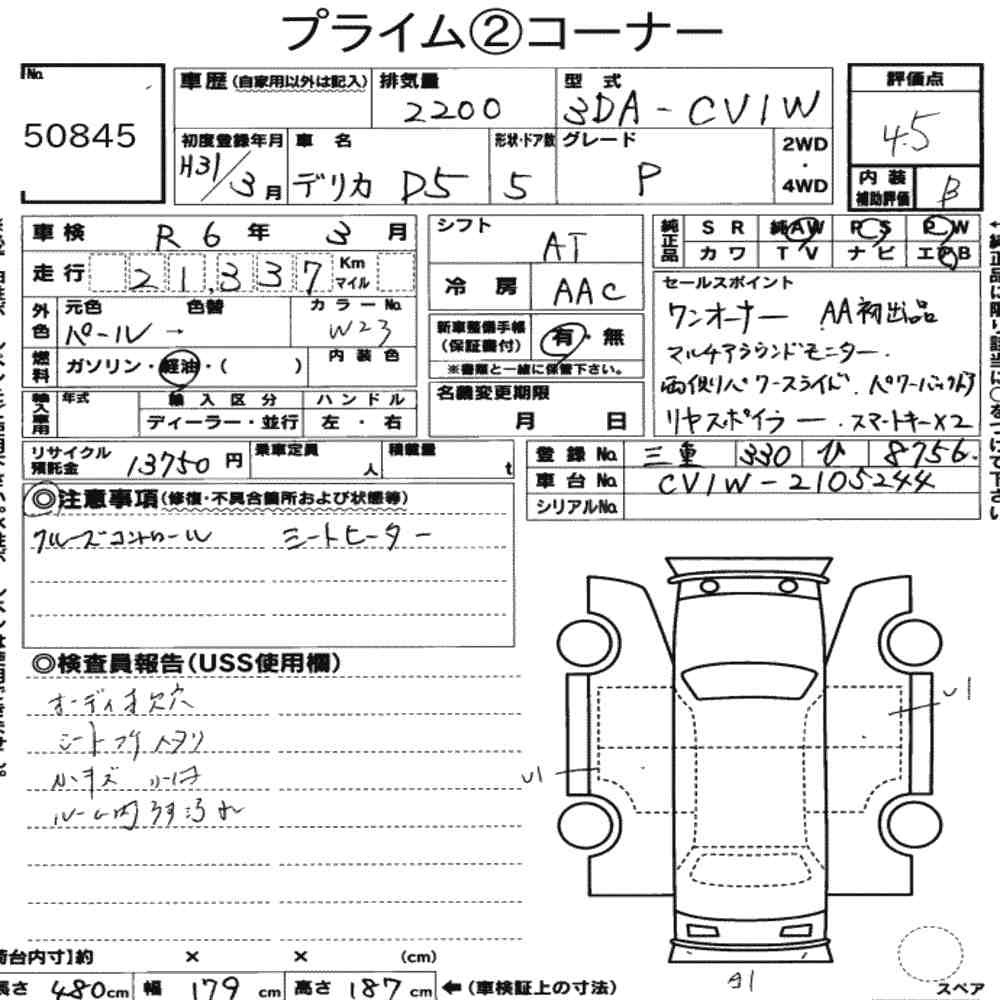 プライム②コーナー
No.
50845
車歴(自家用以外は記入)
排気量
2200
型式
3DA-CV1W
評価点
4.5
初度登録年月
H31/3月
車名
デリカ D5
形状・ドア数
5
グレード
P
2WD
・
4WD
内装
補助評価
B
車検
R6年 3月
走行
21,337
Km
マイル
シフト
AT
冷房
AAC
純正品
SR 純AW PS PW
カワ TV ナビ エアB
外色
元色 色替 カラーNo.
パール → W23
燃料
ガソリン・軽油・( )
内装色
新車整備手帳
(保証書付)
有・無
※書類と一緒に保管下さい。
セールスポイント
ワンオーナー AA初出品
マルチアラウンドモニター.
両側パワースライド. パワーバックドア
リヤスポイラー. スマートキーX2
輸入車用
年式
輸入区分
ハンドル
ディーラー・並行
左・右
名義変更期限
月 日
リサイクル
預託金
13750円
乗車定員
人
積載量
t
登録No.
三重 330 ひ 8756
車台No.
CV1W-2105244
シリアルNo.
◎注意事項(修復・不具合箇所および状態等)
クルーズコントロール シートヒーター
◎検査員報告(USS使用欄)
オーディオ欠穴
小キズ
U1
U1
荷台内寸】約 × × (cm)
長さ 480cm 幅 179cm 高さ 187cm ←(車検証上の寸法)
A1
スペア